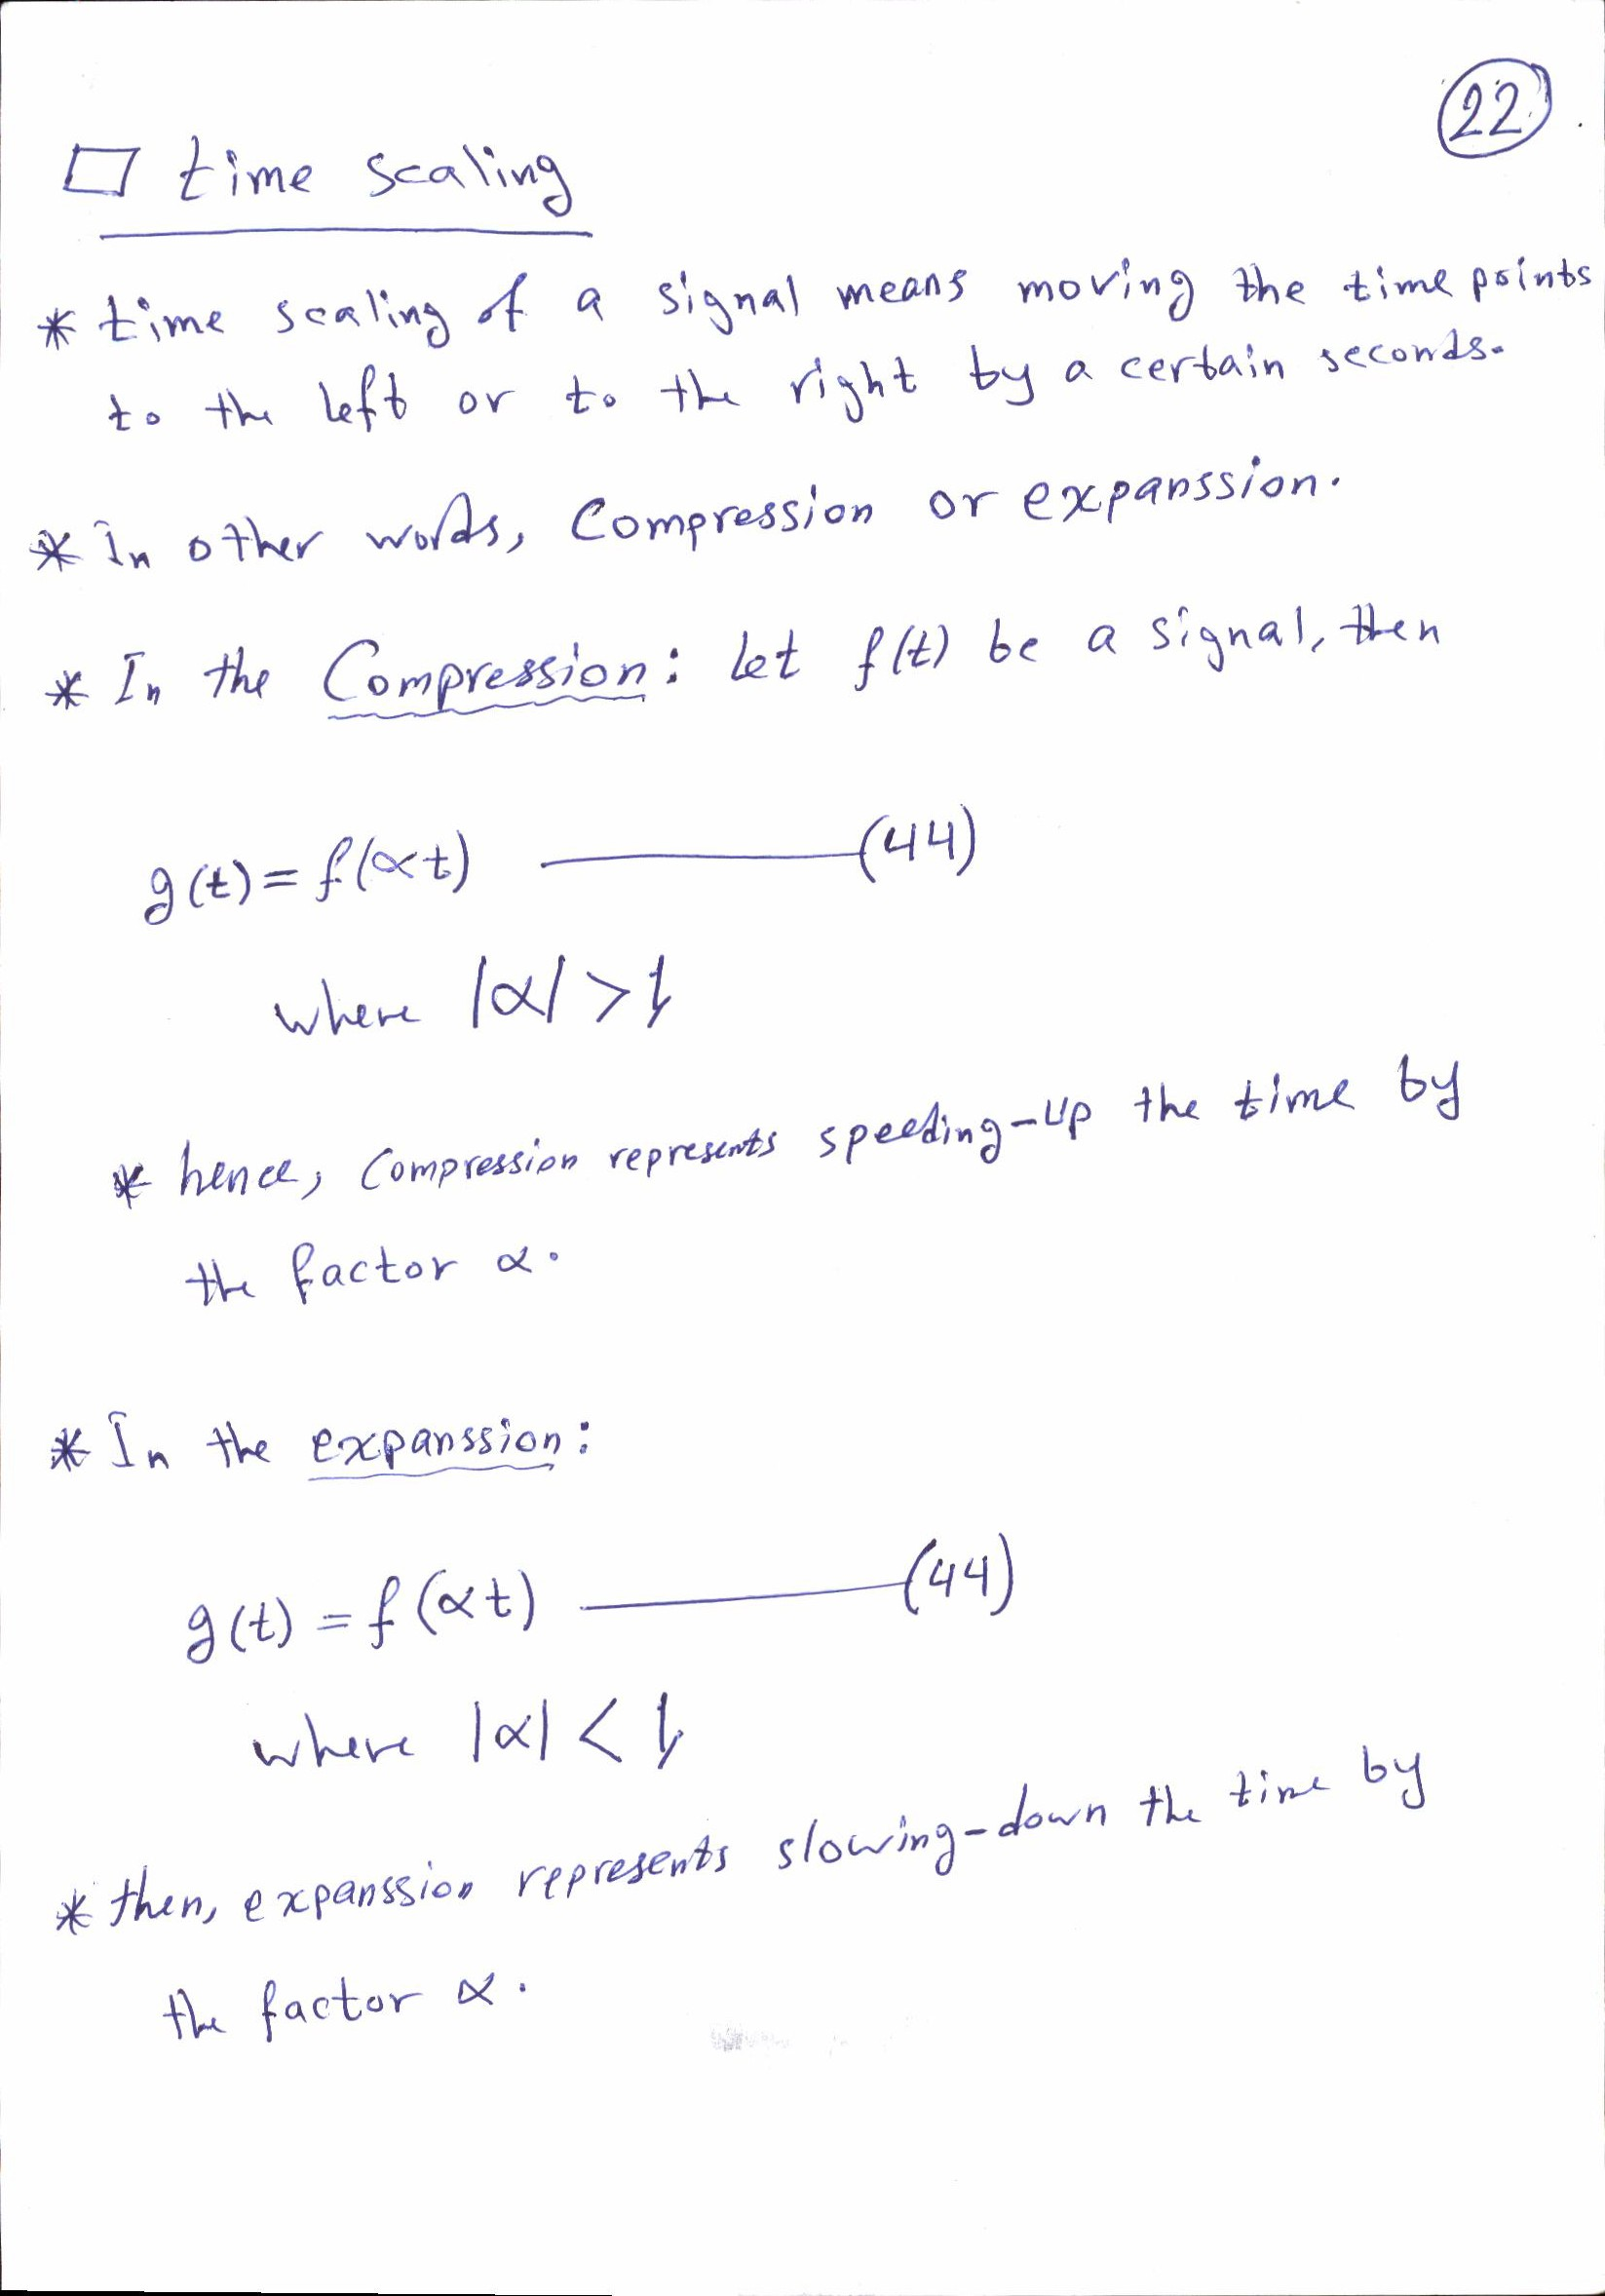 22
time scaling
* time scaling of a signal means moving the time points
to the left or to the right by a certain seconds.
* In other words, Compression or expanssion.
* In the Compression: Let f(t) be a signal, then
g(t) = f(αt) ———(44)
where |α| > 1,
* hence, Compression represents speeding-up the time by
the factor α.
* In the expanssion:
g(t) = f(αt) ———(44)
where |α| < 1,
* then, expanssion represents slowing-down the time by
the factor α.